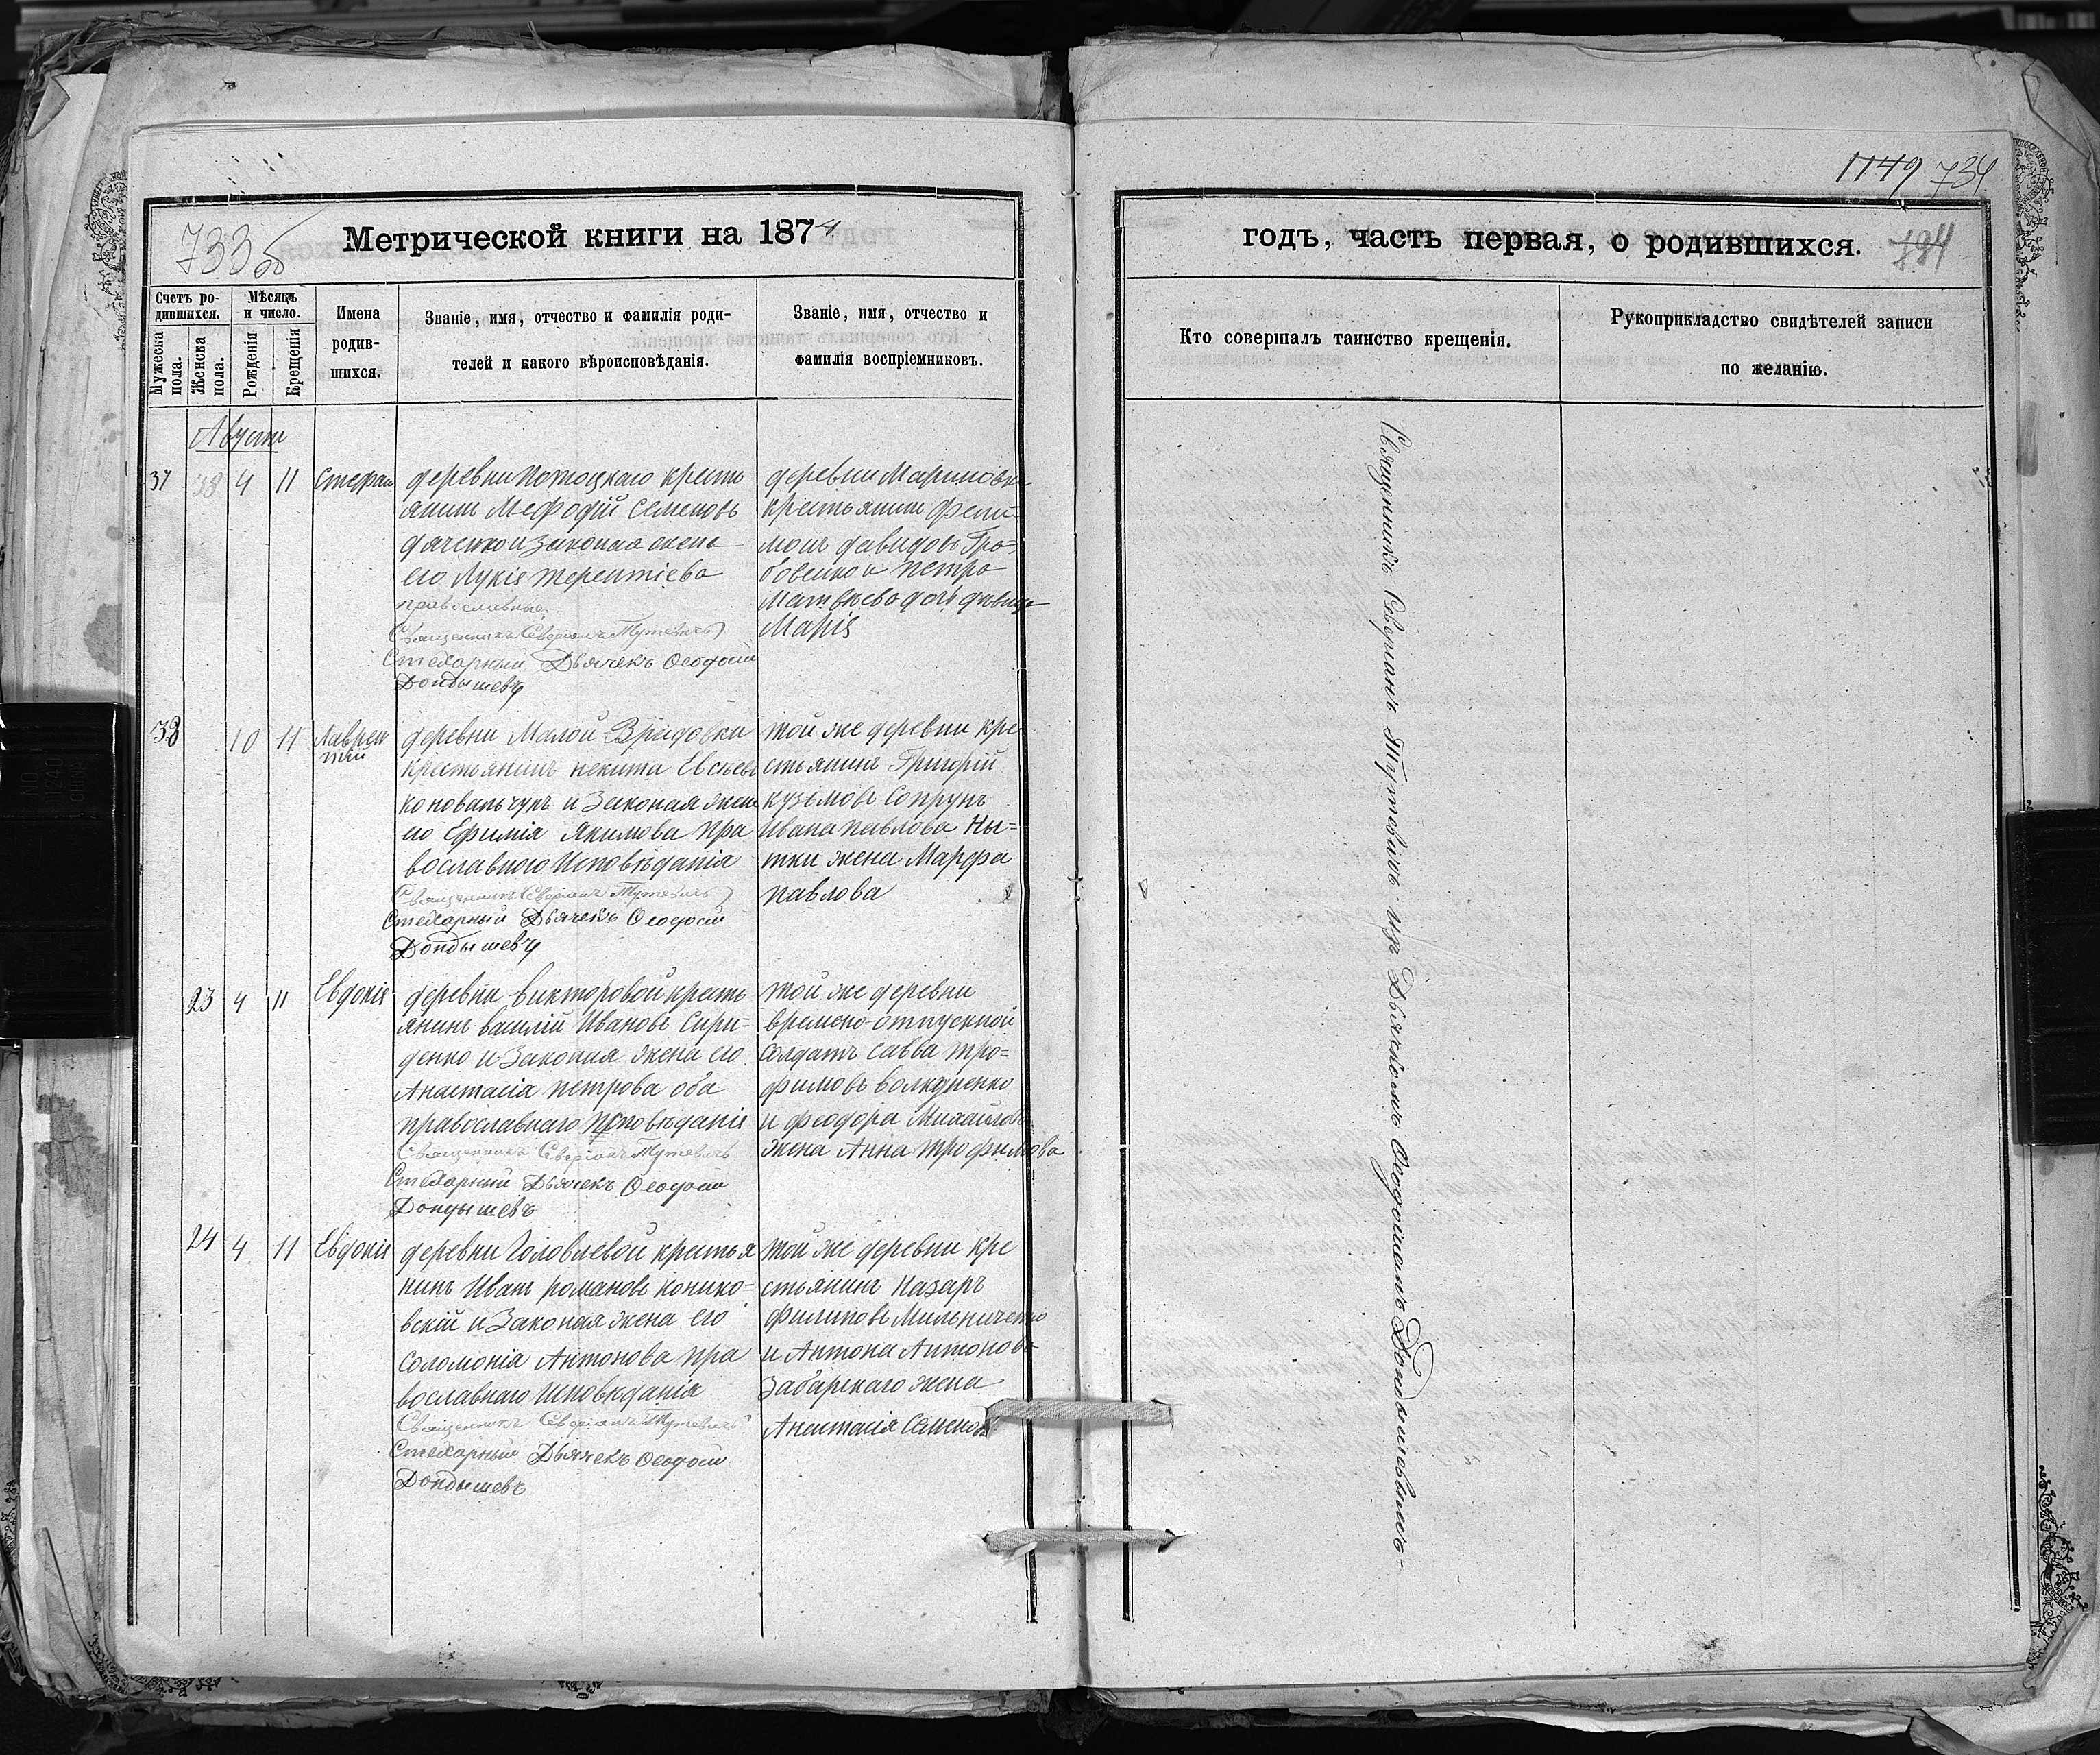 1149 734
733 об
Метрической книги на 1874
годъ, часть первая, о родившихся.
Счетъ ро-
дившихся.
Мужеска пола.
Женска пола.
Мѣсяцъ
и число.
Рожденія
Крещенія
Имена
родив-
шихся.
Званіе, имя, отчество и фамилія роди-
телей и какого вѣроисповѣданія.
Званіе, имя, отчество и
фамилія воспріемниковъ.
Кто совершалъ таинство крещенія.
Рукоприкладство свидѣтелей записи
по желанію.
Августъ
37 38 4 11 Стефан
деревни Потоцкаго крестъ
янин Мефодій Семеновъ
дяченко и Законая жена
его Лукія терентіева
православные
Священникъ Северіанъ Тутевичъ
Стехарный Дьячекъ Ѳеодосій
Дондышевъ
деревни Мариновки
крестьянин
мон давидовъ
и петра
Матвѣева дочь
Марія
38 10 11 Лаврен
тій
деревни Малой Врадовки
крестьянинъ некита Евсѣевъ
коновальчукъ и Законая жена
его Ефимія Якимова пра
вославного Исповѣданія
Священникъ Северіанъ Тутевичъ
Стехарный Дьячекъ Ѳеодосій
Дондышевъ
той же деревни кре
стьянинъ Григорій
кузьмовъ Сопрунъ
Ивана павлова Ны=
тки жена Марфа
павлова
23 4 11 Евдокія
деревни викторовой кресть
янинъ василій Ивановъ Сири=
денко и Законая жена его
Анастасія петрова оба
православнаго исповѣданія
Священникъ Северіанъ Тутевичъ
Стехарный Дьячекъ Ѳеодосій
Дондышевъ
той же деревни
времено-отпускной
Солдатъ Савва тро=
фимовъ
и феодора Михайлова
жена Анна трофимова
24 4 11 Евдокія
деревни Головлевой крестья
нинъ Иванъ романовъ конико=
вскій и Законая жена его
Соломонія Антонова пра
вославнаго Исповѣданія
Священникъ Северіанъ Тутевичъ
Стехарный Дьячекъ Ѳеодосій
Дондышевъ
той же деревни кре
стьянинъ Назаръ
филиповъ Мильниченко
и Антона Антонова
Забарскаго жена
Анастасія Семенова
Священникъ Северіанъ Тутевичъ изъ Дьячкомъ Ѳеодосіемъ Дондышовымъ